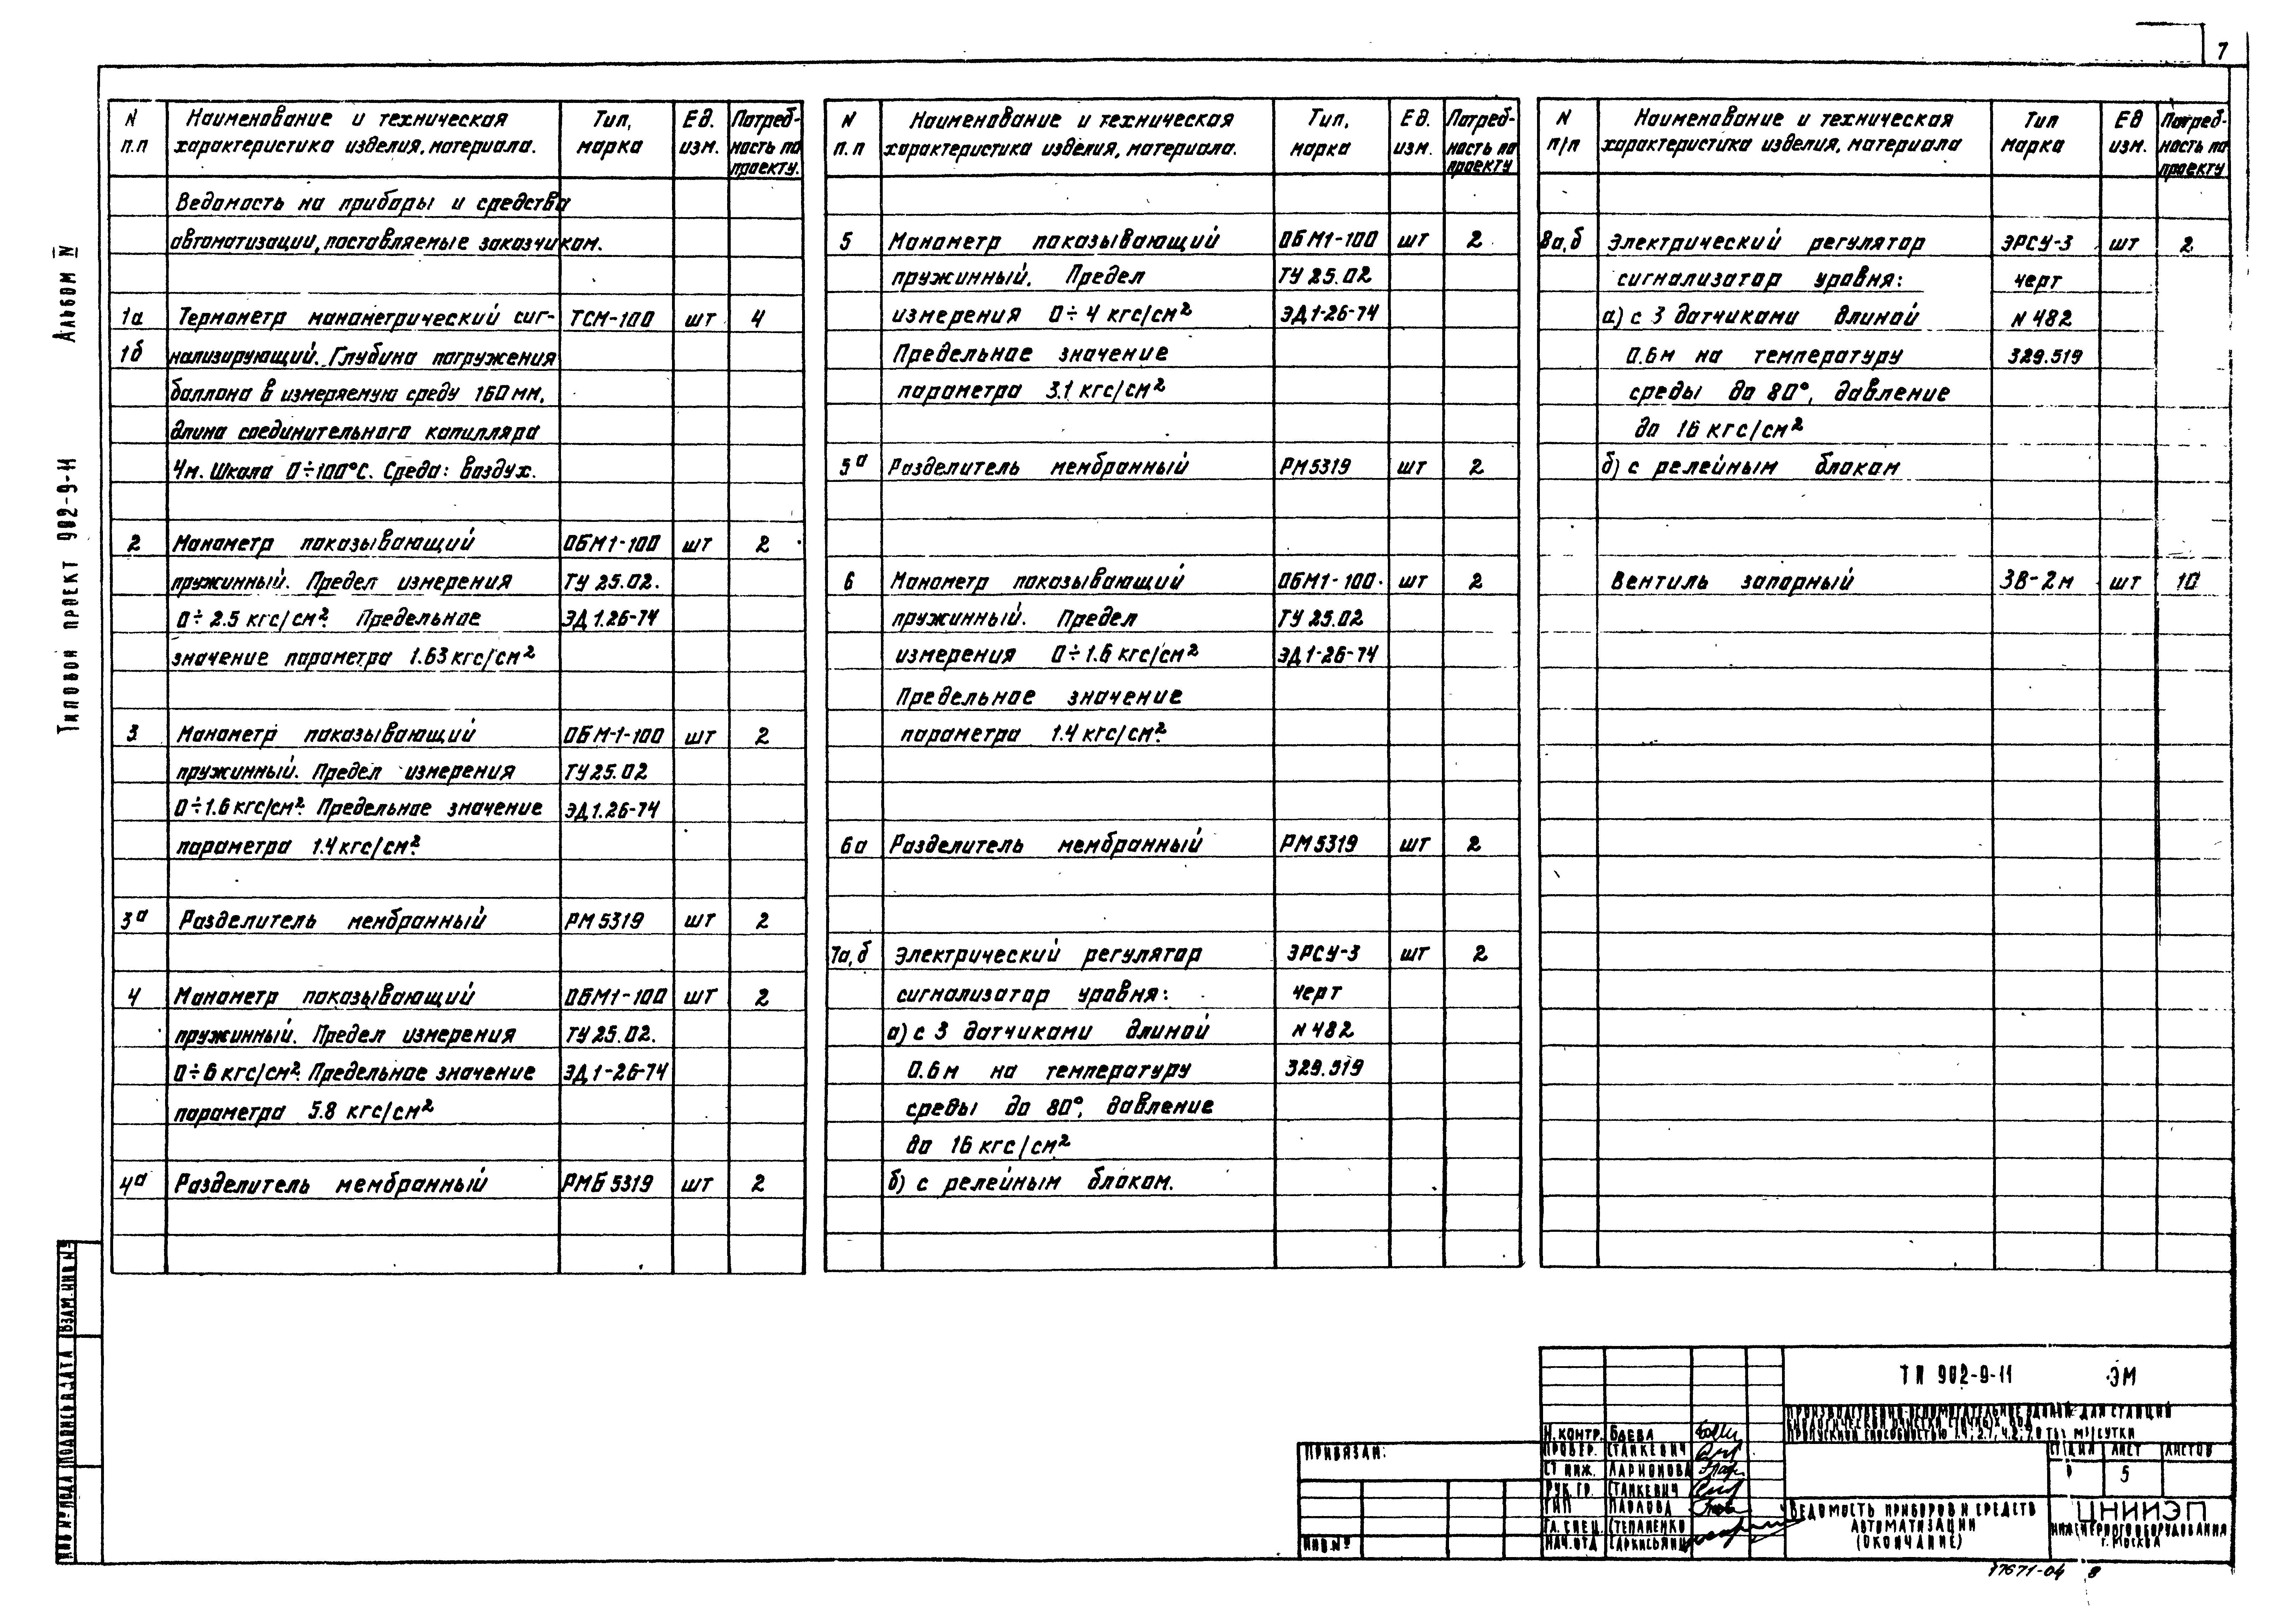 7
Альбом IV
Типовой проект 902-9-11
N п.п
Наименование и техническая характеристика изделия, материала.
Тип, марка
Ед. изм.
Потребность по проекту.
Ведомость на приборы и средства
автоматизации, поставляемые заказчиком.
1а Термометр манометрический сиг- ТСМ-100 шт 4
1б нализирующий. Глубина погружения
баллона в измеряемую среду 160 мм,
длина соединительного капилляра
4м. Шкала 0÷100°С. Среда: воздух.
2 Манометр показывающий ОБМ1-100 шт 2
пружинный. Предел измерения ТУ 25.02.
0÷2.5 кгс/см². Предельное ЭД1.26-74
значение параметра 1.63 кгс/см²
3 Манометр показывающий ОБМ-1-100 шт 2
пружинный. Предел измерения ТУ25.02
0÷1.6 кгс/см². Предельное значение ЭД1.26-74
параметра 1.4 кгс/см².
3а Разделитель мембранный РМ 5319 шт 2
4 Манометр показывающий ОБМ1-100 шт 2
пружинный. Предел измерения ТУ 25.02.
0÷6 кгс/см². Предельное значение ЭД1-26-74
параметра 5.8 кгс/см²
4а Разделитель мембранный РМБ 5319 шт 2
N п.п
Наименование и техническая характеристика изделия, материала.
Тип, марка
Ед. изм.
Потребность по проекту
5 Манометр показывающий ОБМ1-100 шт 2
пружинный. Предел ТУ 25.02
измерения 0÷4 кгс/см² ЭД1-26-74
Предельное значение
параметра 3.1 кгс/см²
5а Разделитель мембранный РМ5319 шт 2
6 Манометр показывающий ОБМ1-100 шт 2
пружинный. Предел ТУ 25.02
измерения 0÷1.6 кгс/см² ЭД1-26-74
Предельное значение
параметра 1.4 кгс/см².
6а Разделитель мембранный РМ5319 шт 2
7а,б Электрический регулятор ЭРСУ-3 шт 2
сигнализатор уровня: черт
а) с 3 датчиками длиной N 482
0.6м на температуру 329.519
среды до 80°, давление
до 16 кгс/см²
б) с релейным блоком.
N п/п
Наименование и техническая характеристика изделия, материала
Тип марка
Ед изм.
Потребность по проекту
8а,б Электрический регулятор ЭРСУ-3 шт 2
сигнализатор уровня: черт
а) с 3 датчиками длиной N 482
0.6м на температуру 329.519
среды до 80°, давление
до 16 кгс/см²
б) с релейным блоком
Вентиль запорный ЗВ-2м шт 10
Инв № подл Подпись и дата Взам. инв №
Привязан:
Инв. №
Н. контр. Баева
Провер. Станкевич
Ст инж. Ларионова
Рук. гр. Станкевич
ГИП Павлова
Гл. спец. Степаненко
Нач. отд Саркисьянц
ТП 902-9-11 ЭМ
Производственно-вспомогательное здание для станций
биологической очистки сточных вод
пропускной способностью 1.4; 2.7; 4.2; 7.0 тыс м³/сутки
Стадия Лист Листов
5
Ведомость приборов и средств
автоматизации
(окончание)
ЦНИИЭП
инженерного оборудования
г. Москва
17671-04 8